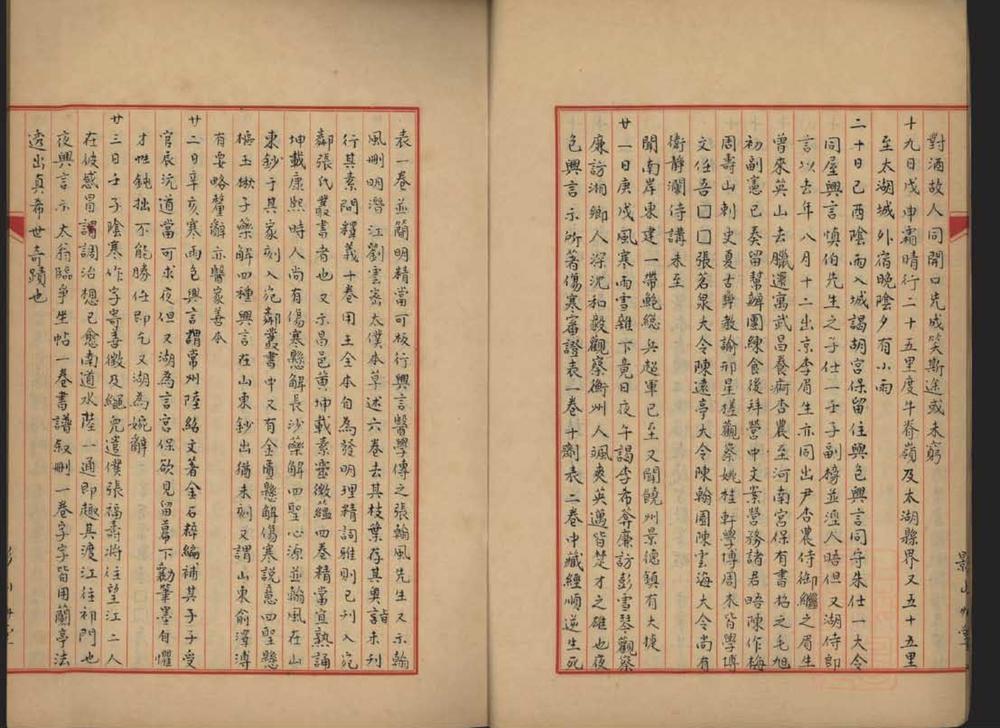 對酒故人同開口先成笑斯途或未窮
十九日戊申霜晴行二十五里度牛脊嶺及太湖縣界又五十五里
至太湖城外宿晚陰夕有小雨
二十日己酉陰雨入城謁胡宮保留住興邑興言同寺朱仕一大令
同屋興言慎伯先生之子仕一壬子副榜並涇人晤但又湖侍郎
言以去年八月十二出京李眉生亦同出尹杏農侍御繼之眉生
曾來英山去臘還寓武昌養痾杏農至河南宮保有書招之毛旭
初副憲已奏留幫辦團練食後拜營中文案營務諸君晤陳作梅
周壽山刺史夏古彝教諭邢星槎觀察姚桂軒學博周木皆學博
文任吾口口張茗泉大令陳遠亭大令陳翰園陳雲海大令尚有
衛靜瀾侍講未至
聞南岸東建一帶鮑總兵超軍已至又聞饒州景德鎮有大捷
廿一日庚戌風寒雨雪雜下竟日夜午謁李希菴廉訪彭雪琴觀察
廉訪湘鄉人深沈和毅觀察衡州人颯爽英邁皆楚才之雄也夜
邑興言示所著傷寒審證表一卷十劑表二卷中藏經順逆生死
表一卷並簡明精當可板行興言醫學傳之張翰風先生又示翰
風刪明潛江劉雲密太僕本草述六卷去其枝葉存其奧詣未刊
行其素問釋義十卷用王全本自為發明理精詞雅則已刊入宛
鄰張氏叢書者也又示昌邑黃坤載素靈微蘊四卷精當宜熟誦
坤載康熙時人尚有傷寒懸解長沙藥解四聖心源並翰風在山
東鈔于其家刻入宛鄰叢書中又有金匱懸解傷寒說意四聖懸
樞玉楸子藥解四種興言在山東鈔出猶未刻又謂山東俞澤溥
有妥略釐辭亦醫家善本
廿二日辛亥寒雨邑興言謂常州陸紹文著金石稡編補其子子受
官辰沅道當可求夜但又湖為言宮保欲見留幕下勷筆墨自懼
才性鈍拙不能勝任即乞又湖為婉辭
廿三日壬子陰寒作字寄善徵及繩兒遣僕張福壽將往望江二人
在彼感冒謂調治想已愈南道水陸一通即趣其渡江往祁門也
夜興言示太翁臨爭坐帖一卷書譜敘刪一卷字字皆用蘭亭法
透出真希世奇蹟也